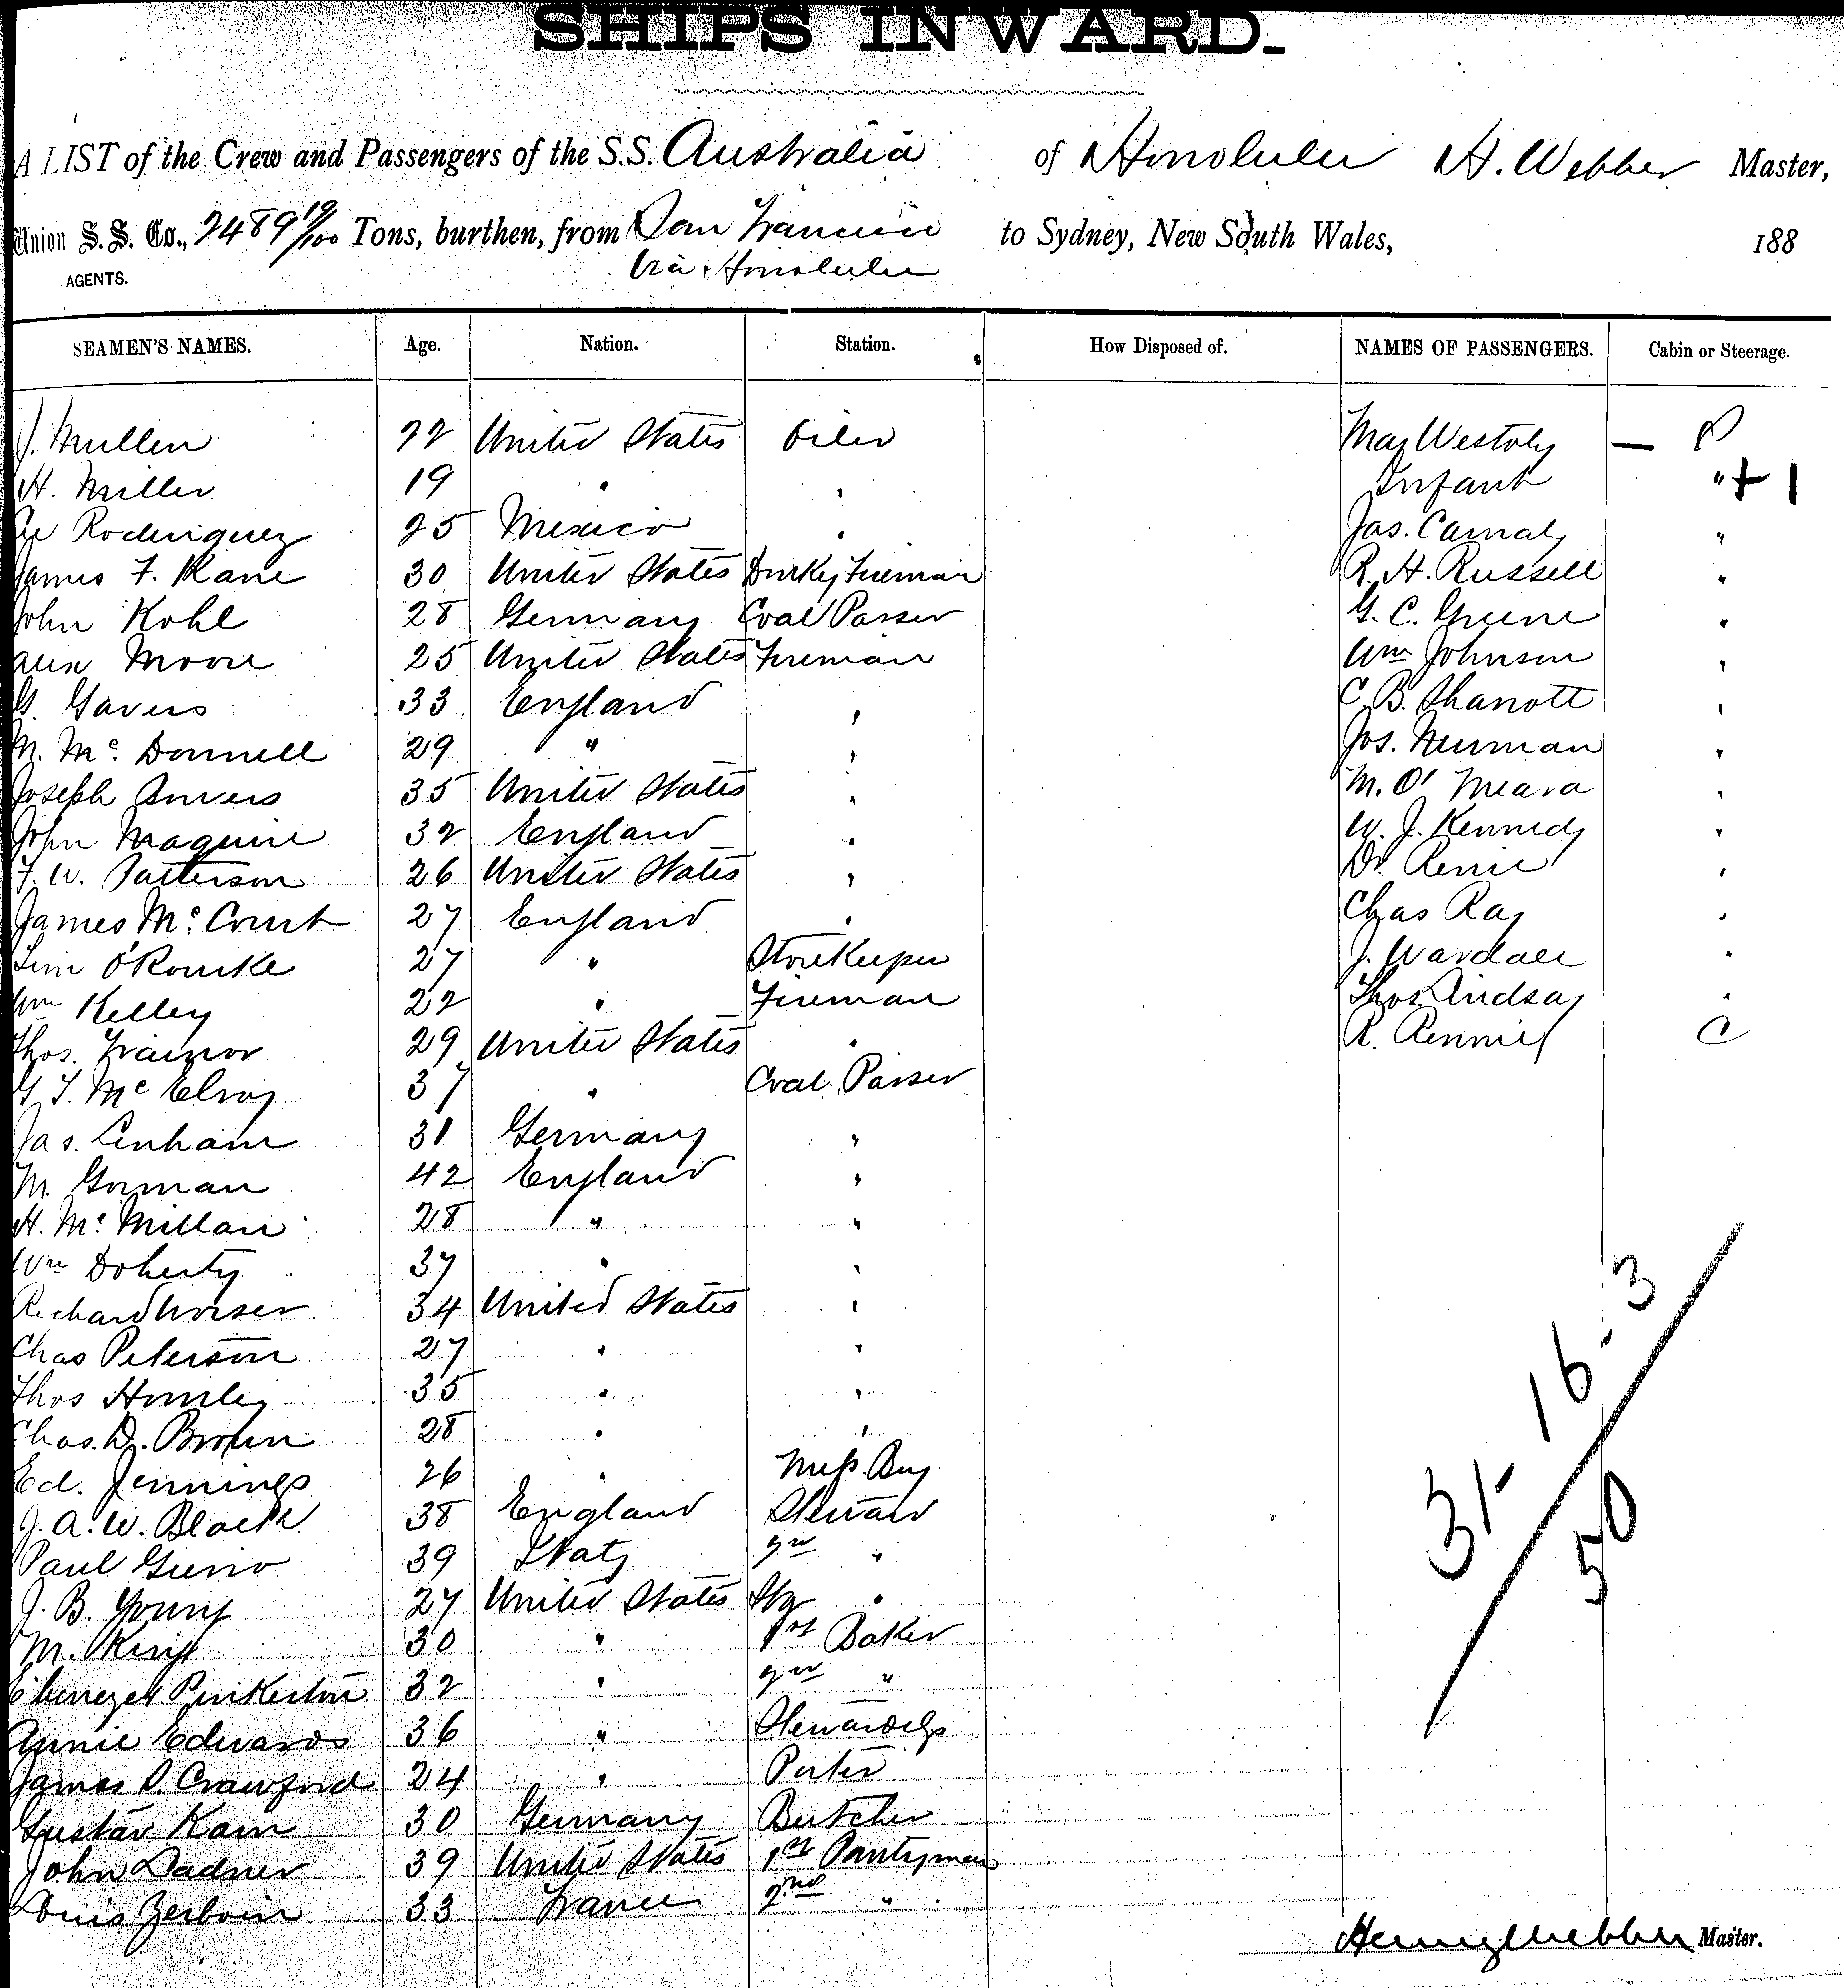 SHIPS INWARD.
A LIST of the Crew and Passengers of the S.S. Australia of Honolulu H. Webber Master,
Union S. S. Co., 2489 19/100 Tons, burthen, from San Francisco to Sydney, New South Wales, 188
AGENTS. Via Honolulu
SEAMEN'S NAMES. Age. Nation. Station. How Disposed of. NAMES OF PASSENGERS. Cabin or Steerage.
J. Mullen 22 United States Oiler May Westoby —
H. Miller 19 " " Infant " + 1
Rodenquez 25 Mexico " Jas. "
James F. Kane 30 United States Donkey Fireman R. H. Russell "
John Kohl 28 Germany Coal Passer G. C. Greene "
Alex Moore 25 United States Fireman Wm Johnson "
G. 33 England " C. B. "
M. Mc Donnell 29 " " Jos. Newman "
Joseph 35 United States " M. O' Meara "
John Maguire 32 England " W. J. Kennedy "
F. W. Patterson 26 United States " Dr. "
James Mc Court 27 England " Chas Ray "
Tim O'Rourke 27 " Storekeeper J. "
Wm Kelley 22 " Fireman Thos Lindsay "
Thos. Trainor 29 United States " R. Rennie C
G. T. Mc Elroy 37 " Coal Passer
Jas. Lenham 31 Germany "
M. Gorman 42 England "
H. Mc Millan 28 " "
Wm Doherty 37 " "
Richard 34 United States "
Chas Peterson 27 " "
Thos 35 " "
Chas. D. Brown 28 " "
Ed. Jennings 26 " Mess Boy
J. A. W. Black 38 England Steward
Paul 39 Italy 2nd "
J. B. Young 27 United States Stg "
M. King 30 " 1st Baker
Ebenezer Pinkerton 32 " 2nd "
Annie Edwards 36 " Stewardess
James P. Crawford 24 " Porter
Gustav Kam 30 Germany Butcher
John Dadner 39 United States 1st Pantryman
Louis Zerboin 33 France 2nd "
31 - 16 . 3
50
Henry Webber Master.